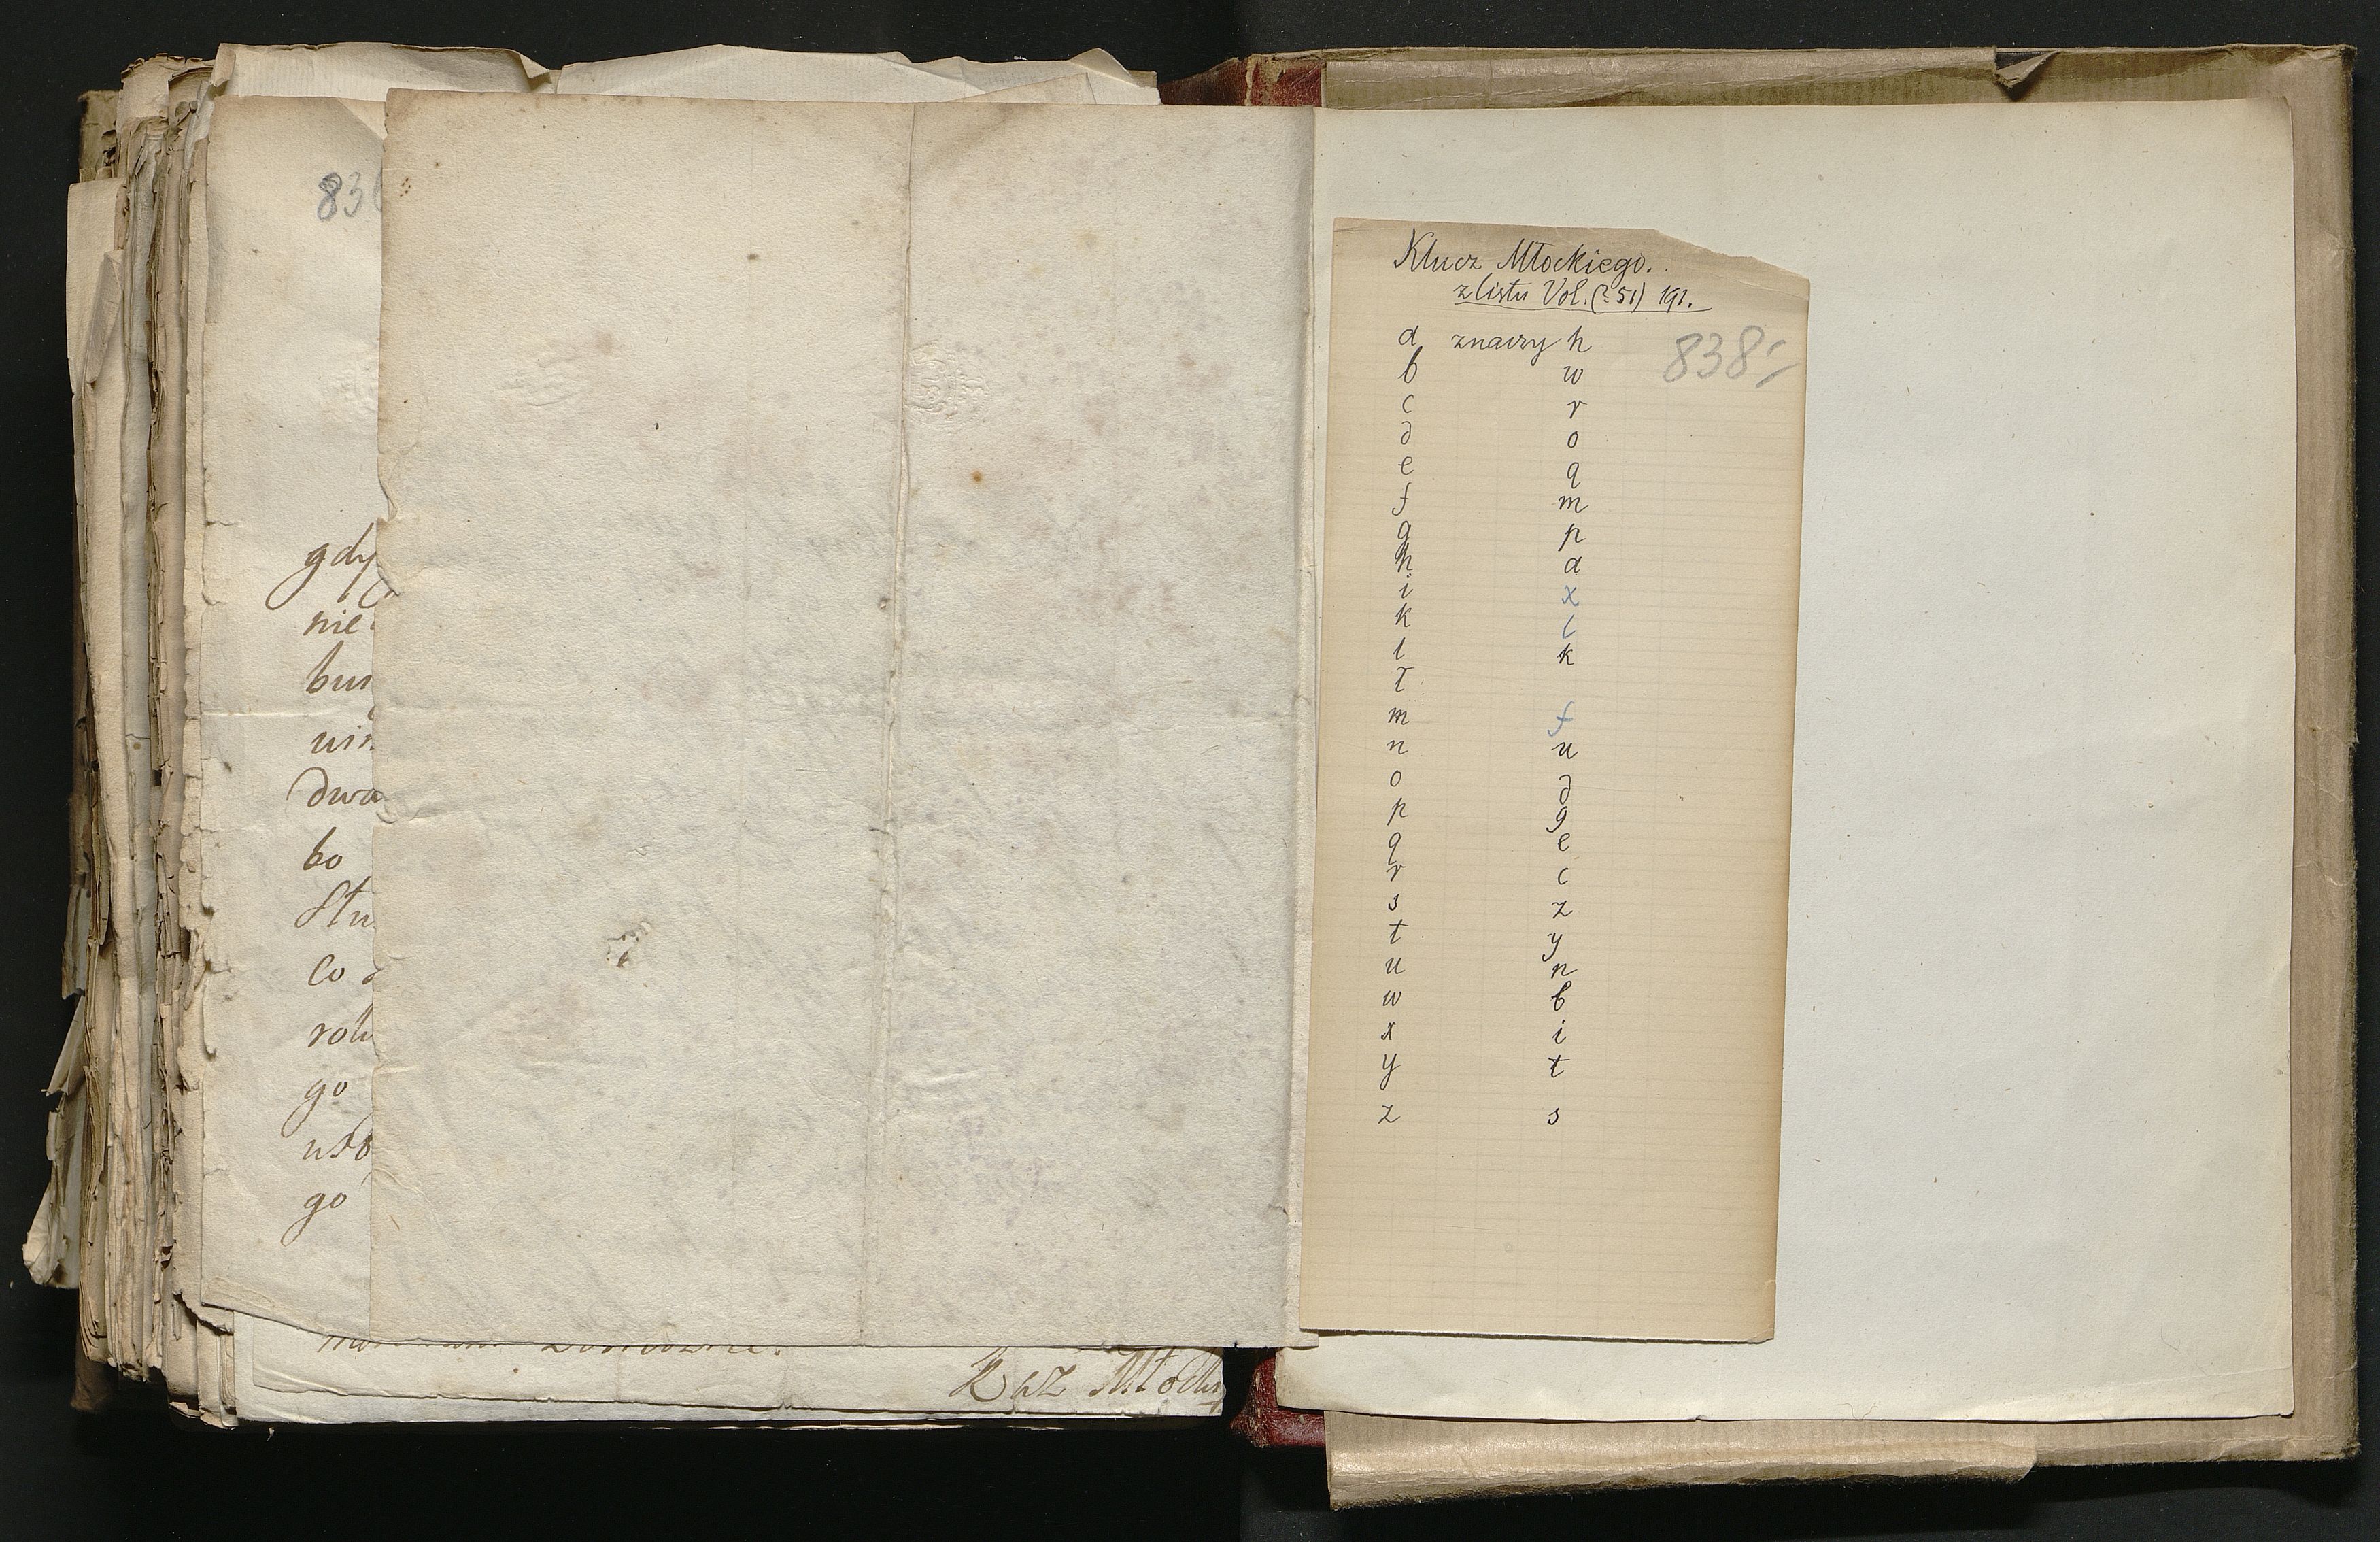 gdy
nie
bur
dwa
bo
Stu
co
go
go
Kaz Młocki
Klucz Młockiego.
z listu Vol. (? 51) 191.
838
a znaczy h
b w
c r
d o
e q
f m
g p
h a
i x
k l
l k
ł
m f
n u
o d
p g
q e
r c
s z
t y
u n
w b
x i
y t
z s